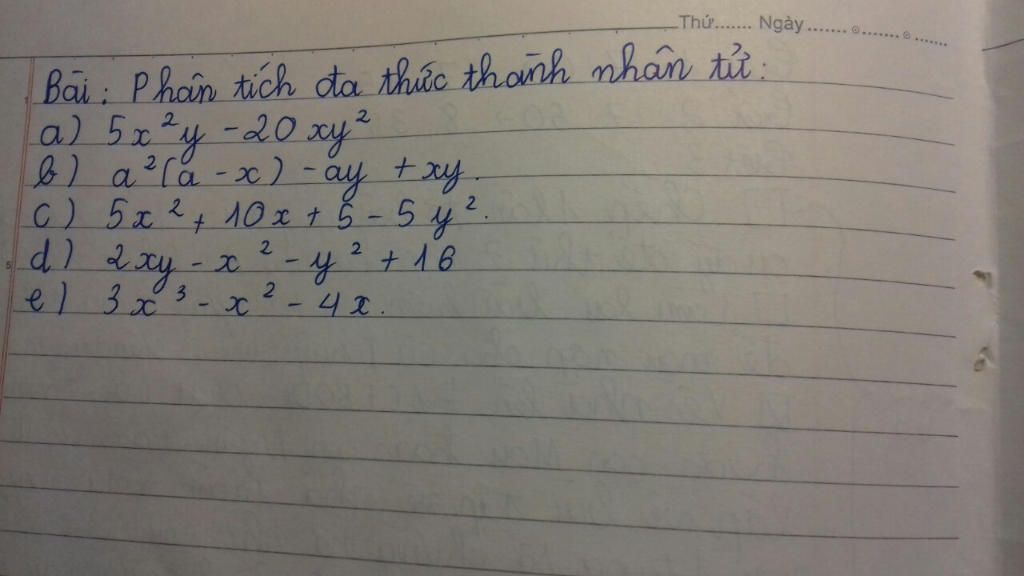 Thứ....... Ngày ....... ⊙.......⊙......
Bài : Phân tích đa thức thành nhân tử :
a) 5x²y - 20xy²
b) a²(a - x) - ay + xy.
c) 5x² + 10x + 5 - 5y².
d) 2xy - x² - y² + 16
e) 3x³ - x² - 4x.